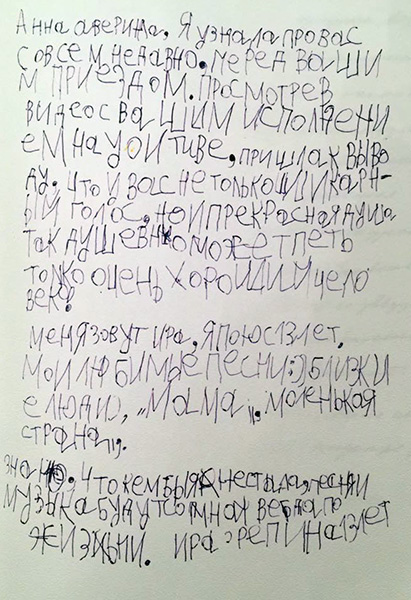 Анна аверина. Я узнала про вас
совсем недавно. перед ваши
м приездом. Просмотрев
видео с вашим исполнени
ем на YouTиве, пришла к выво
ду. Что у вас не только шикарн-
ый голос, но и прекрасная душа
так душевно может петь
только очень хороший чело
век!
меня зовут ира. Я пою с 13 лет.
мои любимые песни: Эблизки
е люди), „мама„. маленькая
страна„.
знаю. Что кем бы я не стала песни
музыка будут со мной
жизни. ира 13 лет